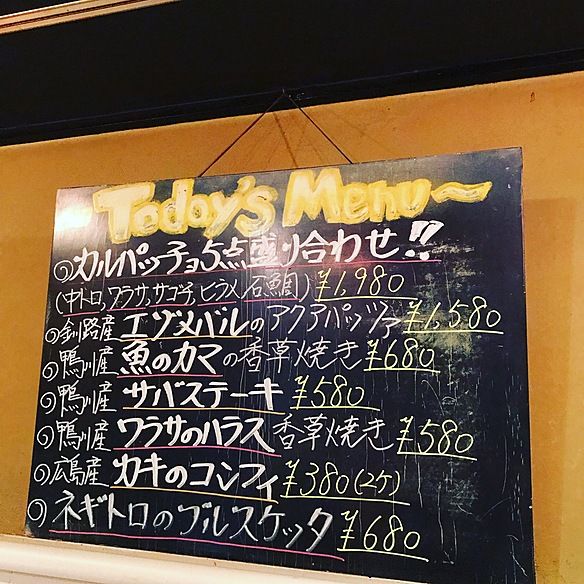 Today's Menu〜
◎カルパッチョ5点盛り合わせ!!
(中トロ,ワラサ,サゴチ,ヒラメ,石鯛) ¥1,980
◎釧路産 エゾメバルのアクアパッツァ ¥1,580
◎鴨川産 魚のカマの香草焼き ¥680
◎鴨川産 サバステーキ ¥580
◎鴨川産 ワラサのハラス 香草焼き ¥580
◎広島産 カキのコンフィ ¥380(2ケ)
◎ネギトロのブルスケッタ ¥680